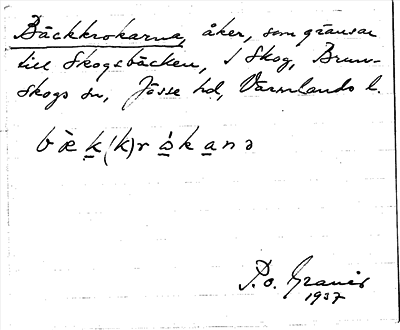 Bäckkrokarna, åker, som gränsar
till Skogsbäcken, i Skog, Brun-
skogs sn, Jösse hd, Värmlands l.
bæ̀k(k)rò̱kana
P.o. Granér
1937